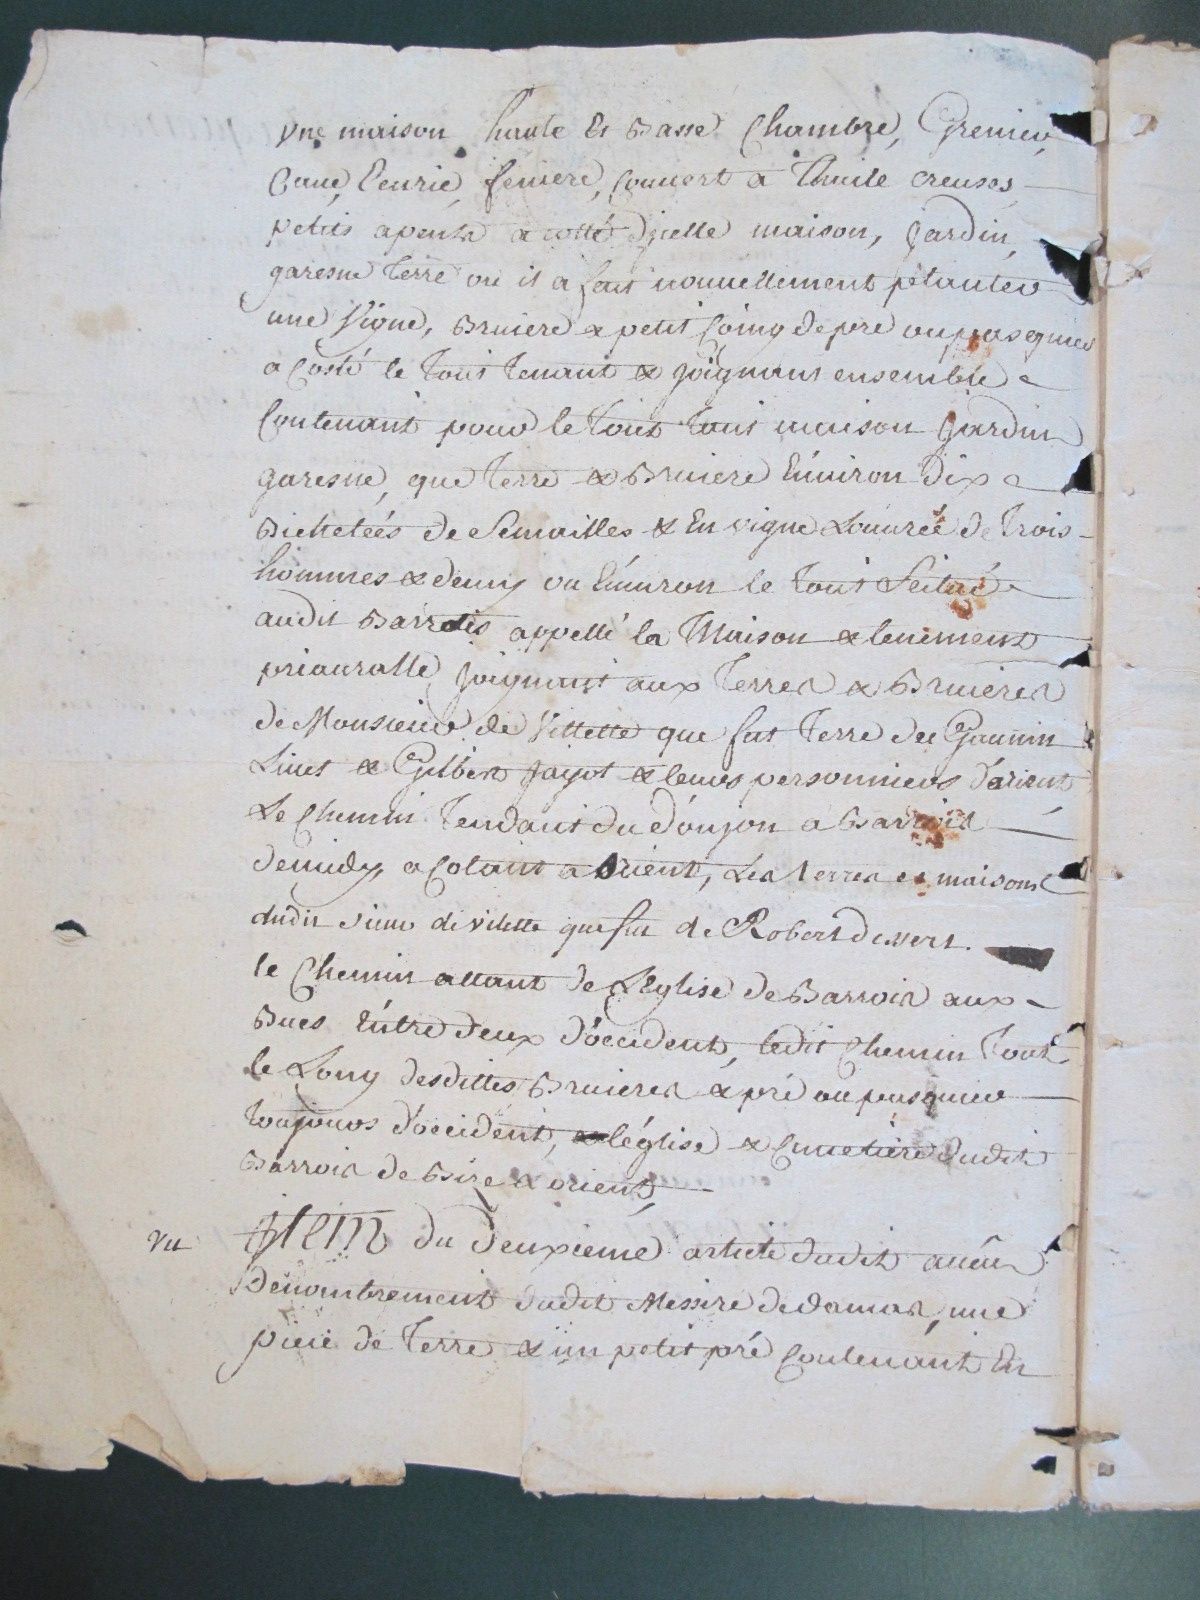 une maison haute et Basse Chambre, Grenier,
Caue, Ecurie, feniere, Couuert a Thuile creuses
petits apentis a cotté d'jcelle maison, jardin,
garesne Terre ou il a fait nouuellement plánter
une Vigne, Bruiere & petit Coing de pré ou pasquier
a Costé le Tout Tenant & joignant ensemble
Contenant pour le Tout Tant maison jardin
garesne, que Terre & Bruiere Enuiron dix
Bichetées de Semailles & En vigne L'ouurée de Trois
hommes & demy ou Enuiron le Tout Scitué
audit Barrois appellé la Maison & tenement
priauralle, joignant aux Terres & Bruieres
de Monsieur de Villette que fut Terre de Gaunin
Liuet & Gilbert jayot & leurs personniers d'orient
Le Chemin Tendant du donjon a Barrois
de midy, a Cotant a Orient, Les Terres et maisons
dudit sieur de vilette que fut de Robert
le Chemin allant de L'Eglise de Barrois aux
Bues Entre deux d'occident, ledit Chemin Tout
le Long desdittes Bruieres & pré ou pasquier
Toujours d'occident, l'église & Cimetière dudit
Barrois de Bize & orient,
vu Item du deuxieme article dudit aueu
Dénombrement dudit Messire de damas, une
piece de Terre & un petit pré Contenant En